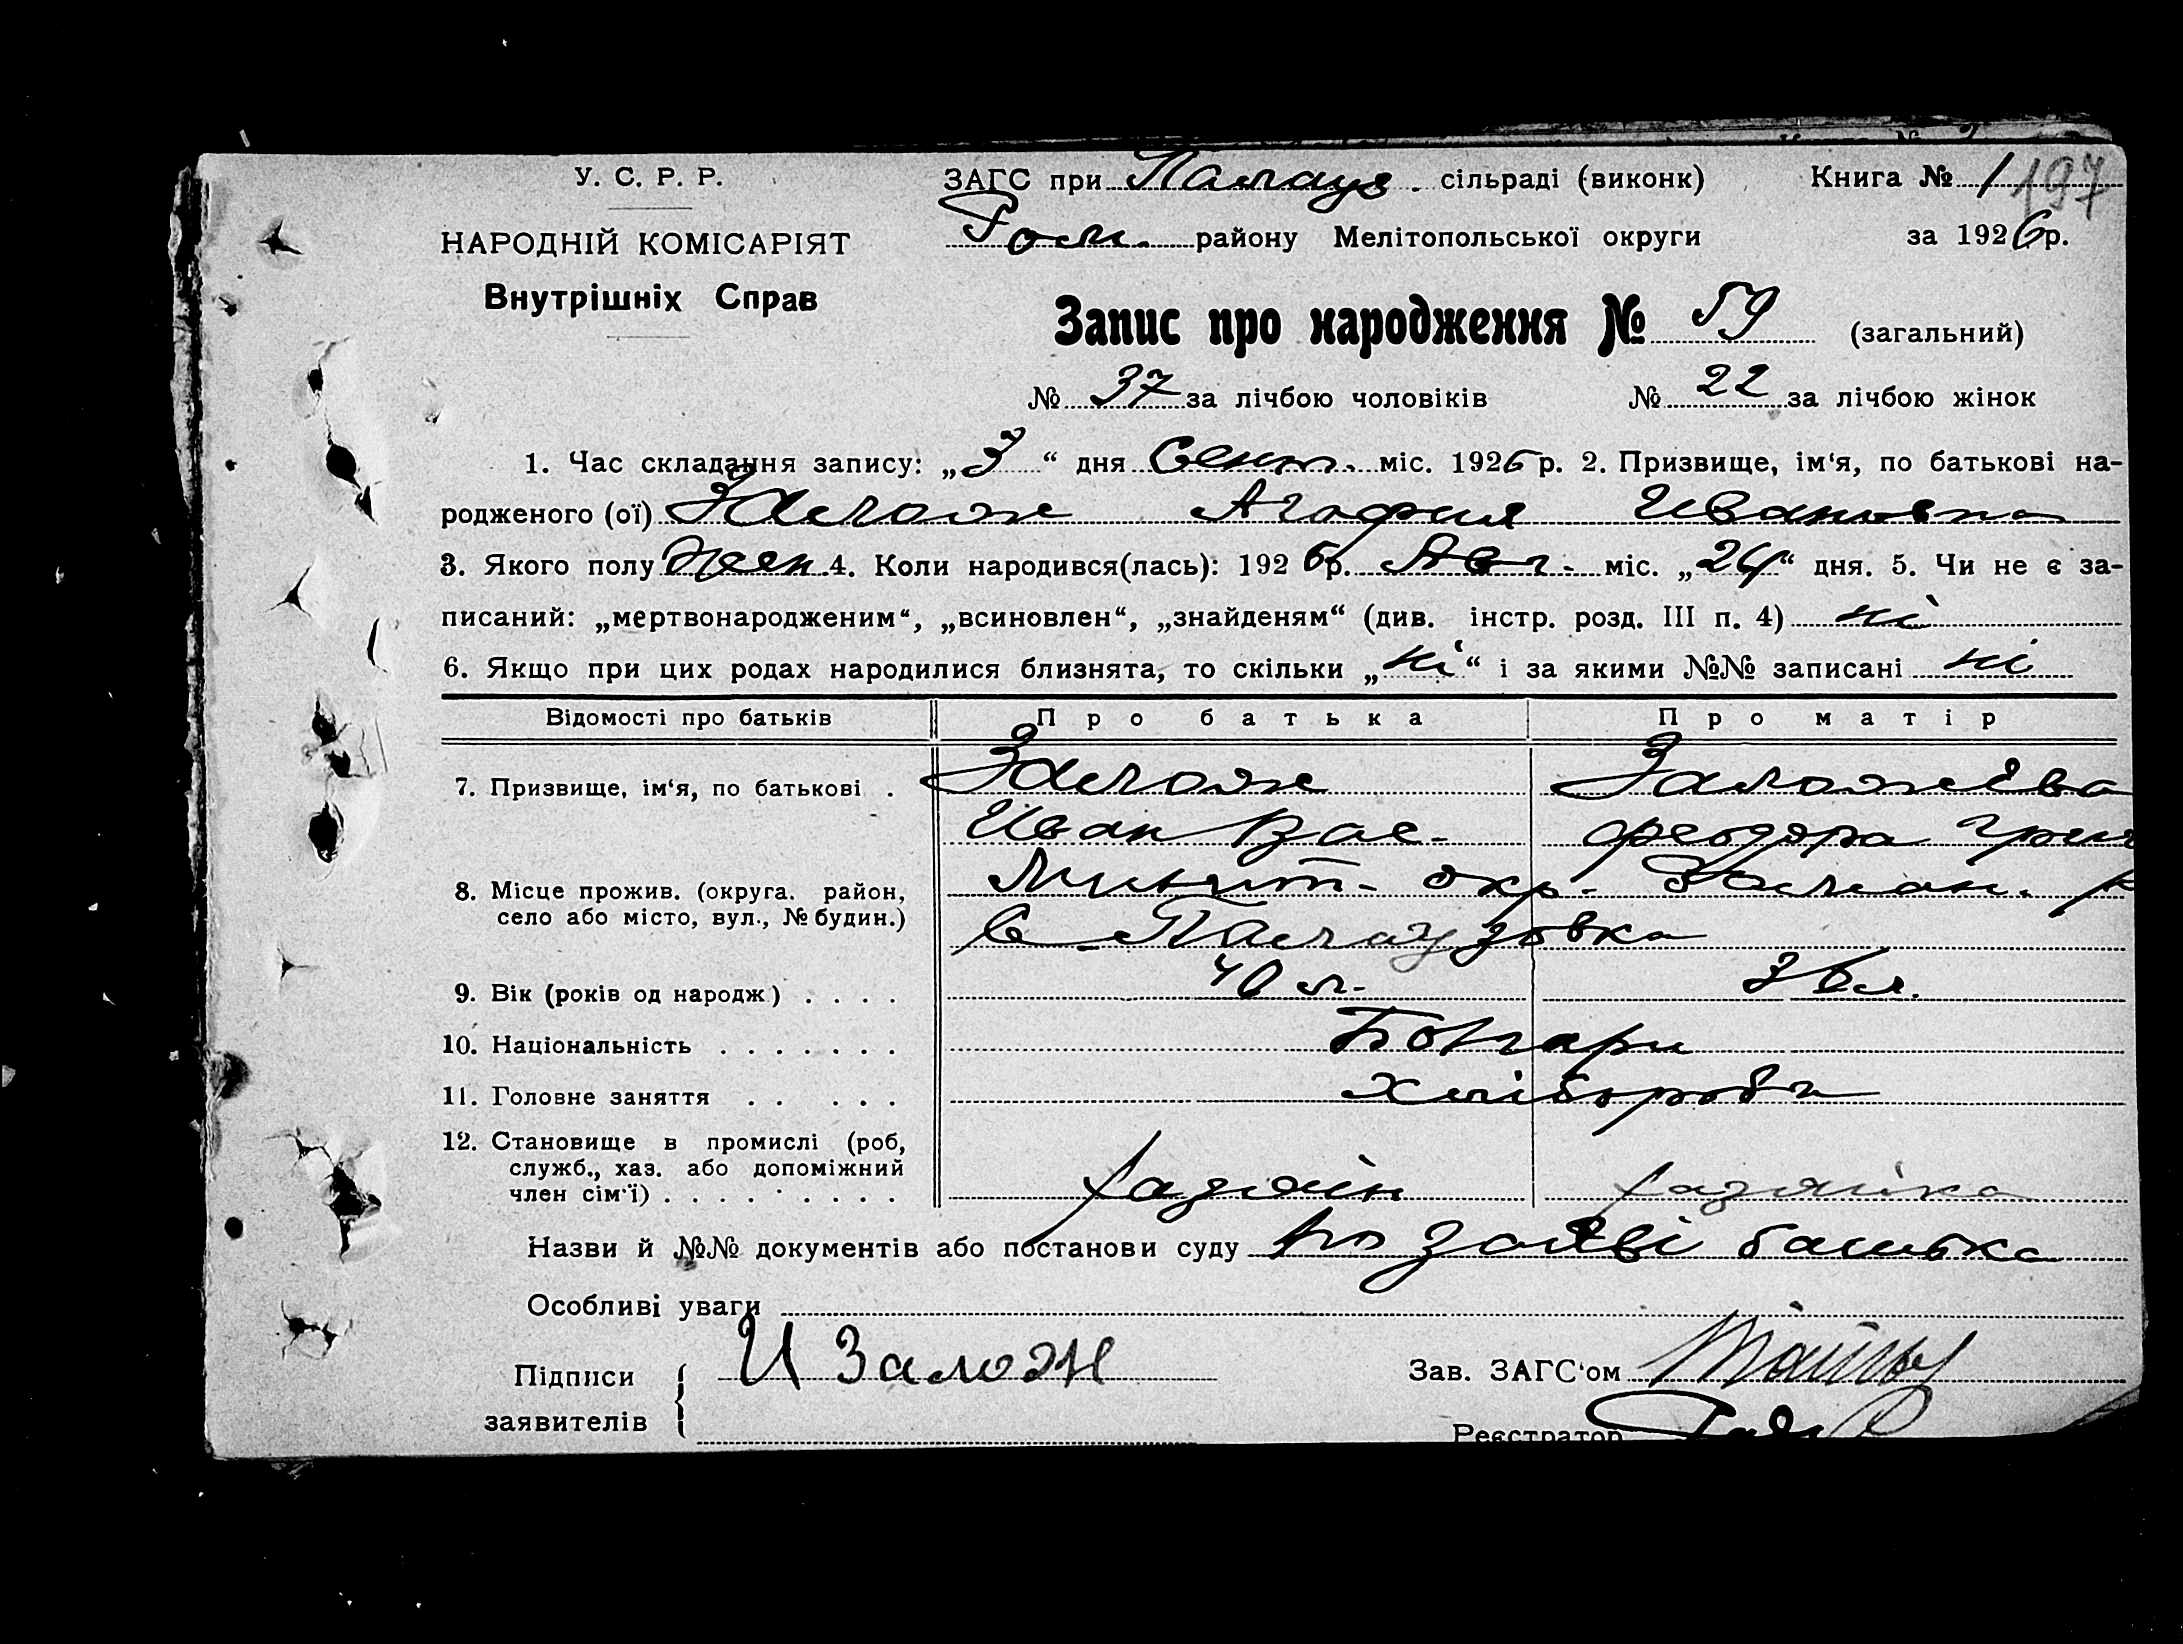 У. С. Р. Р.
НАРОДНІЙ КОМІСАРІЯТ
Внутрішніх Справ
ЗАГС при Палауз. сільраді (виконк) Книга № 1 197
Ром. району Мелітопольської округи за 1926 р.
Запис про народження № 59 (загальний)
№ 37 за лічбою чоловіків № 22 за лічбою жінок
1. Час складання запису: „3“ дня Сент. міс. 1926 р. 2. Призвище, ім‘я, по батькові на-
родженого (ої) Залож Агафия Ивановна
3. Якого полу жен. 4. Коли народився(лась): 1926 р. Авг. міс. „24“ дня. 5. Чи не є за-
писаний: „мертвонародженим“, „всиновлен“, „знайденям“ (див. інстр. розд. III п. 4) ні
6. Якщо при цих родах народилися близнята, то скільки „ні“ і за якими №№ записані ні
Відомості про батьків Про батька Про матір
7. Призвище, ім‘я, по батькові . Залож Заложева
Иван Вас- феодора Григ
8. Місце прожив. (округа. район, село або місто, вул., № будин.) Мелит- окр-
с Палаузовка
9. Вік (років од народж) . . . . 40 л. 36 л.
10. Національність . . . . . . . Болгари
11. Головне заняття . . . . . Хлібороби
12. Становище в промислі (роб, служб., хаз. або допоміжний член сім‘ї) . . . . . . . . . хазяїн хазяйка
Назви й №№ документів або постанови суду по заяві батька
Особливі уваги
Підписи заявителів И Залож
Зав. ЗАГС‘ом
Реєстратор